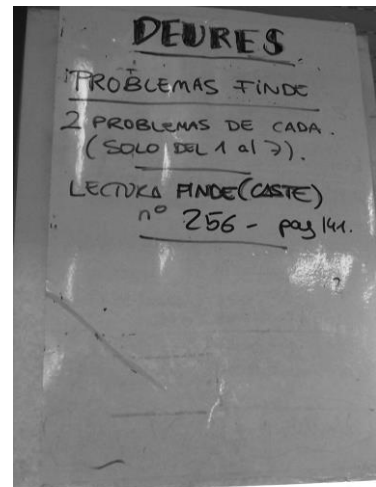 DEURES
PROBLEMAS FINDE
2 PROBLEMAS DE CADA.
(SOLO DEL 1 al 7).
LECTURA FINDE (CASTE)
nº 256 - pag 141.